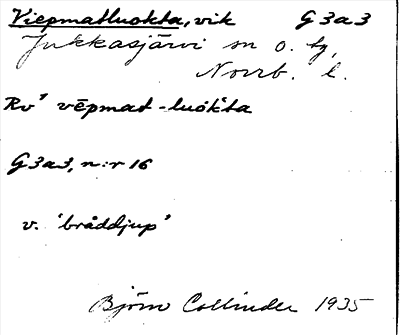 Viepmatluokta, vik G3a3
Jukkasjärvi sn o. tg,
Norrb. l.
Rv' vēpmat-luokta
G3a3, n:r 16
v. 'bråddjup'
Björn Collinder 1935